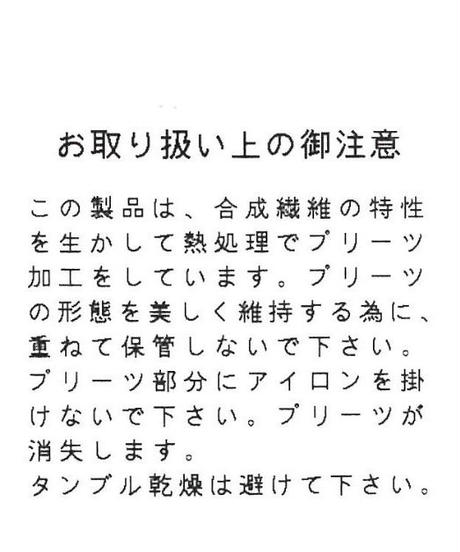 お取り扱い上の御注意
この製品は、合成繊維の特性
を生かして熱処理でプリーツ
加工をしています。プリーツ
の形態を美しく維持する為に、
重ねて保管しないで下さい。
プリーツ部分にアイロンを掛
けないで下さい。プリーツが
消失します。
タンブル乾燥は避けて下さい。